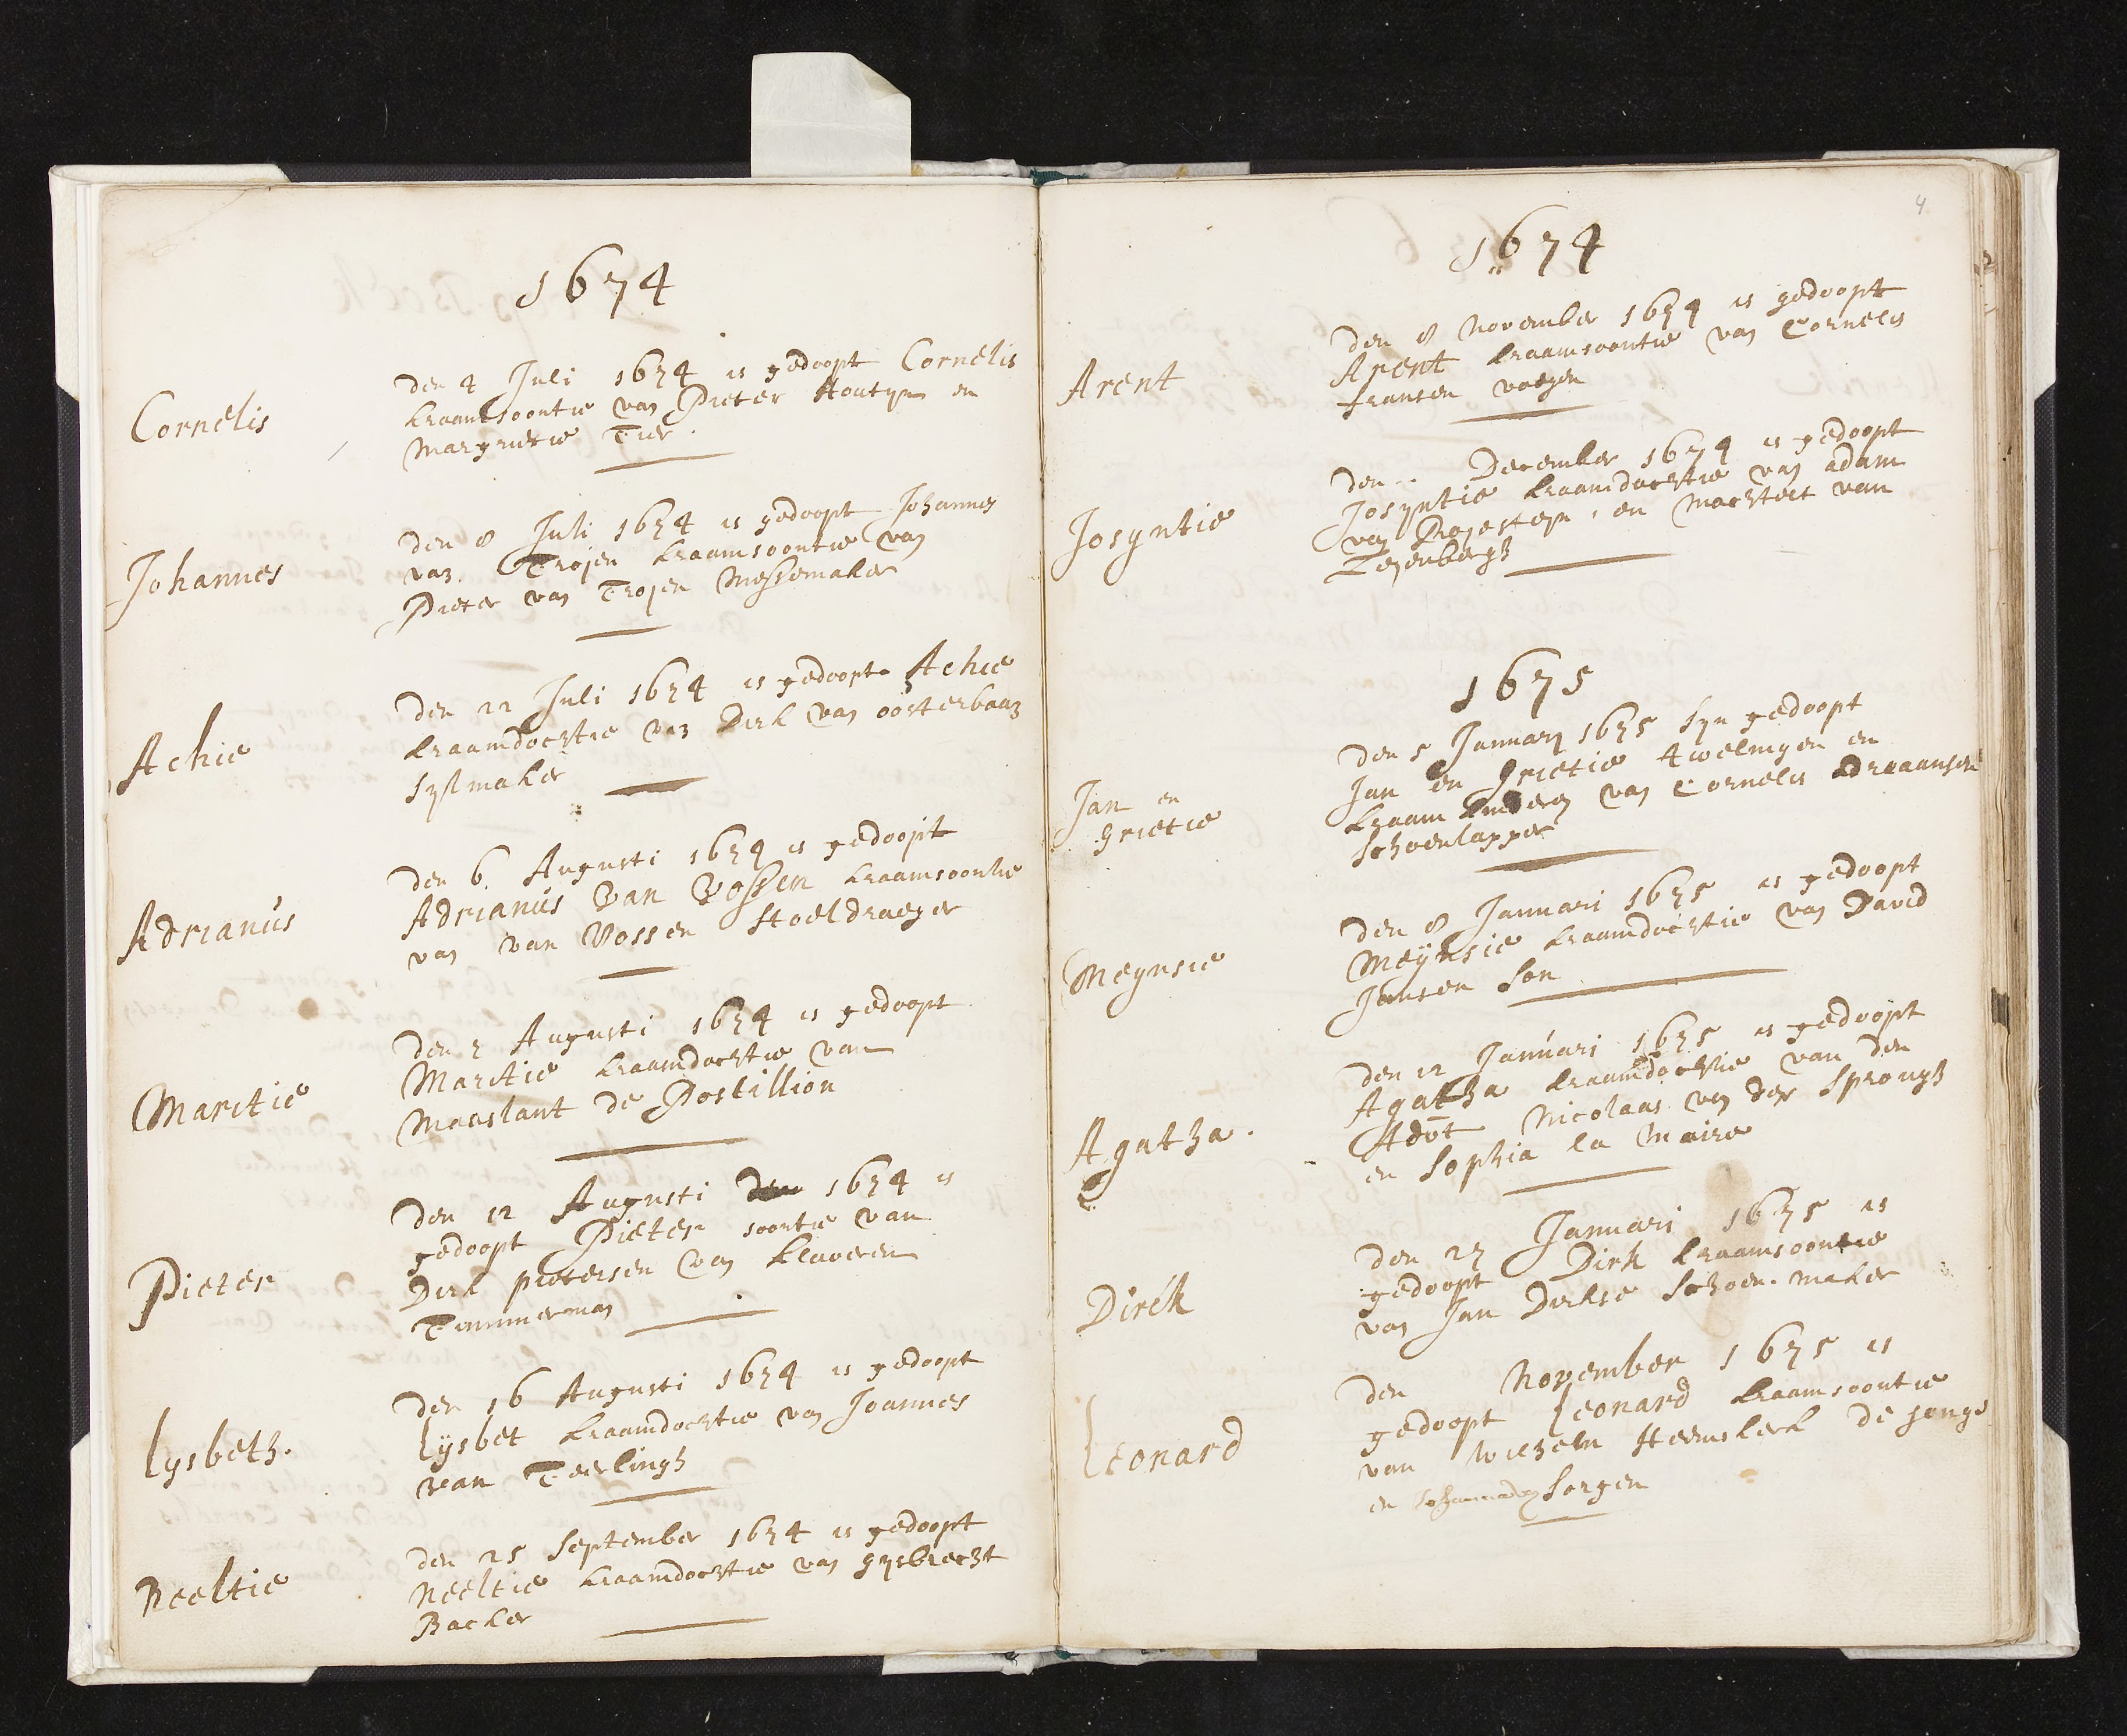 1674
Cornelis
den 4 Juli 1674 is gedoopt Cornelis
kraamsoontie van Pieter Houtyn en
Margrietie Tier.
Johannes
den 8 Juli 1674 is gedoopt Johannes
van Trojen kraamsoontie van
Pieter van Trojen Messemaker
Achie
den 22 Juli 1674 is gedoopt Achie
kraamdochtie van Dirk van oosterbaan
Syllmaker
Adrianus
den 6. Augusti 1674 is gedoopt
Adrianus van Vossen kraamsoontie
van van Vossen stoeldraeger
Maritie
den 7 Augusti 1674 is gedoopt
Maritie kraamdochtie van
Maaslant de Postillion
Pieter
den 12 Augusti 1674 is
gedoopt Pieter soontie van
Dirk pietersen van Klaveren
Timmerman
Lysbeth.
den 16 Augusti 1674 is gedoopt
Lysbet kraamdochtie van Joannes
van Teerlingh
Neeltie
den 25 September 1674 is gedoopt
Neeltie kraamdochtie van gysbrecht
Backer
4
1674
Arent
den 8 November 1674 is gedoopt
Arent kraamsoontie van Cornelis
fransen
Josyntie
den .. December 1674 is gedoopt
Josyntie kraamdochtie van adam
van en Machtelt van
Zezenbergh
1675
Jan en
grietie
den 5 January 1675 syn gedoopt
Jan en Grietie twelingen en
kraam kinderen van Cornelis adriaansen
schoenlapper
Meynsie
den 8 Januari 1675 is gedoopt
Meynsie kraamdochtie van David
Jansen Son
Agatha.
den 12 Januari 1675 is gedoopt
Agatha kraamdochtie van den
Advt Nicolaas van der Sprongh
en Sophia la Maire
Dirck
den 27 Januari 1675 is
gedoopt Dirk kraamsoontie
van Jan Dirkse Schoen-maker
Leonard
den November 1675 is
gedoopt Leonard kraamsoontie
van Wilhem Heemskerk de jonge
en Johanna van Sorgen